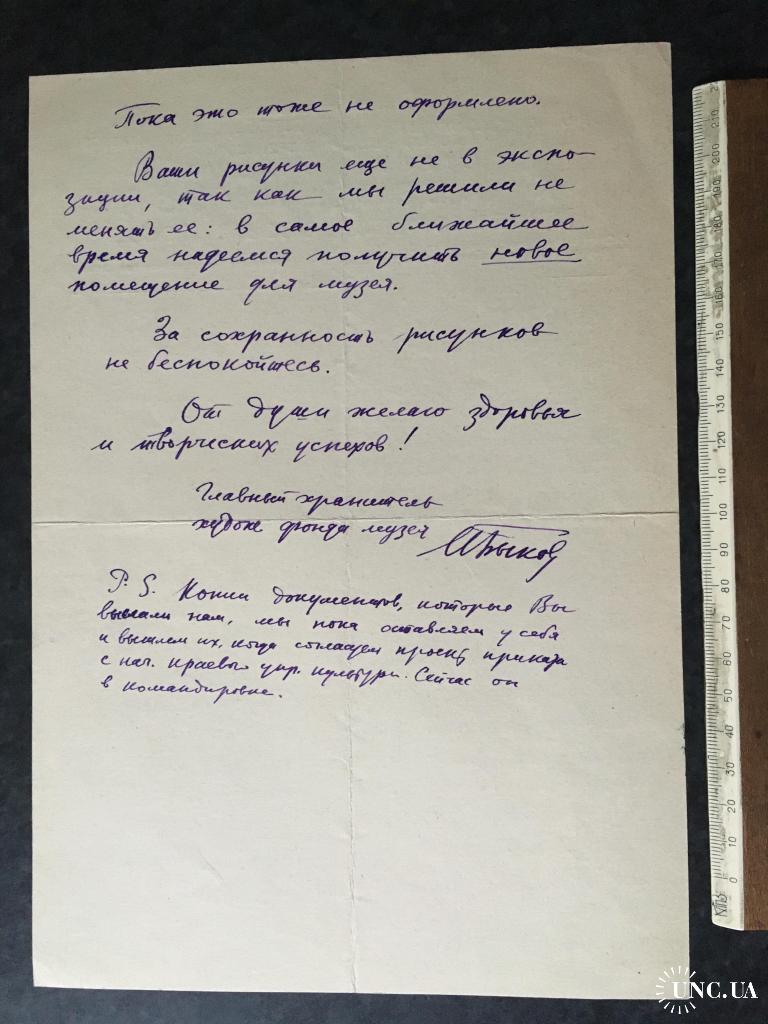 Пока это тоже не оформлено.
Ваши рисунки еще не в экспо-
зиции, так как мы решили не
менять ее: в самое ближайшее
время надеемся получить новое
помещение для музея.
За сохранность рисунков
не беспокойтесь.
От души желаю здоровья
и творческих успехов!
Главный хранитель
худож фонда музея
Быков
P.S. Копии документов, которые Вы
выслали нам, мы пока оставляем у себя
и вышлем их, когда согласуем проект приказа
с нач. краевого упр. культуры. Сейчас он
в командировке.
0 10 20 30 40 50 60 70 80 90 100 110 120 130 140 150 160 170 180 190 200 210
UNC.UA